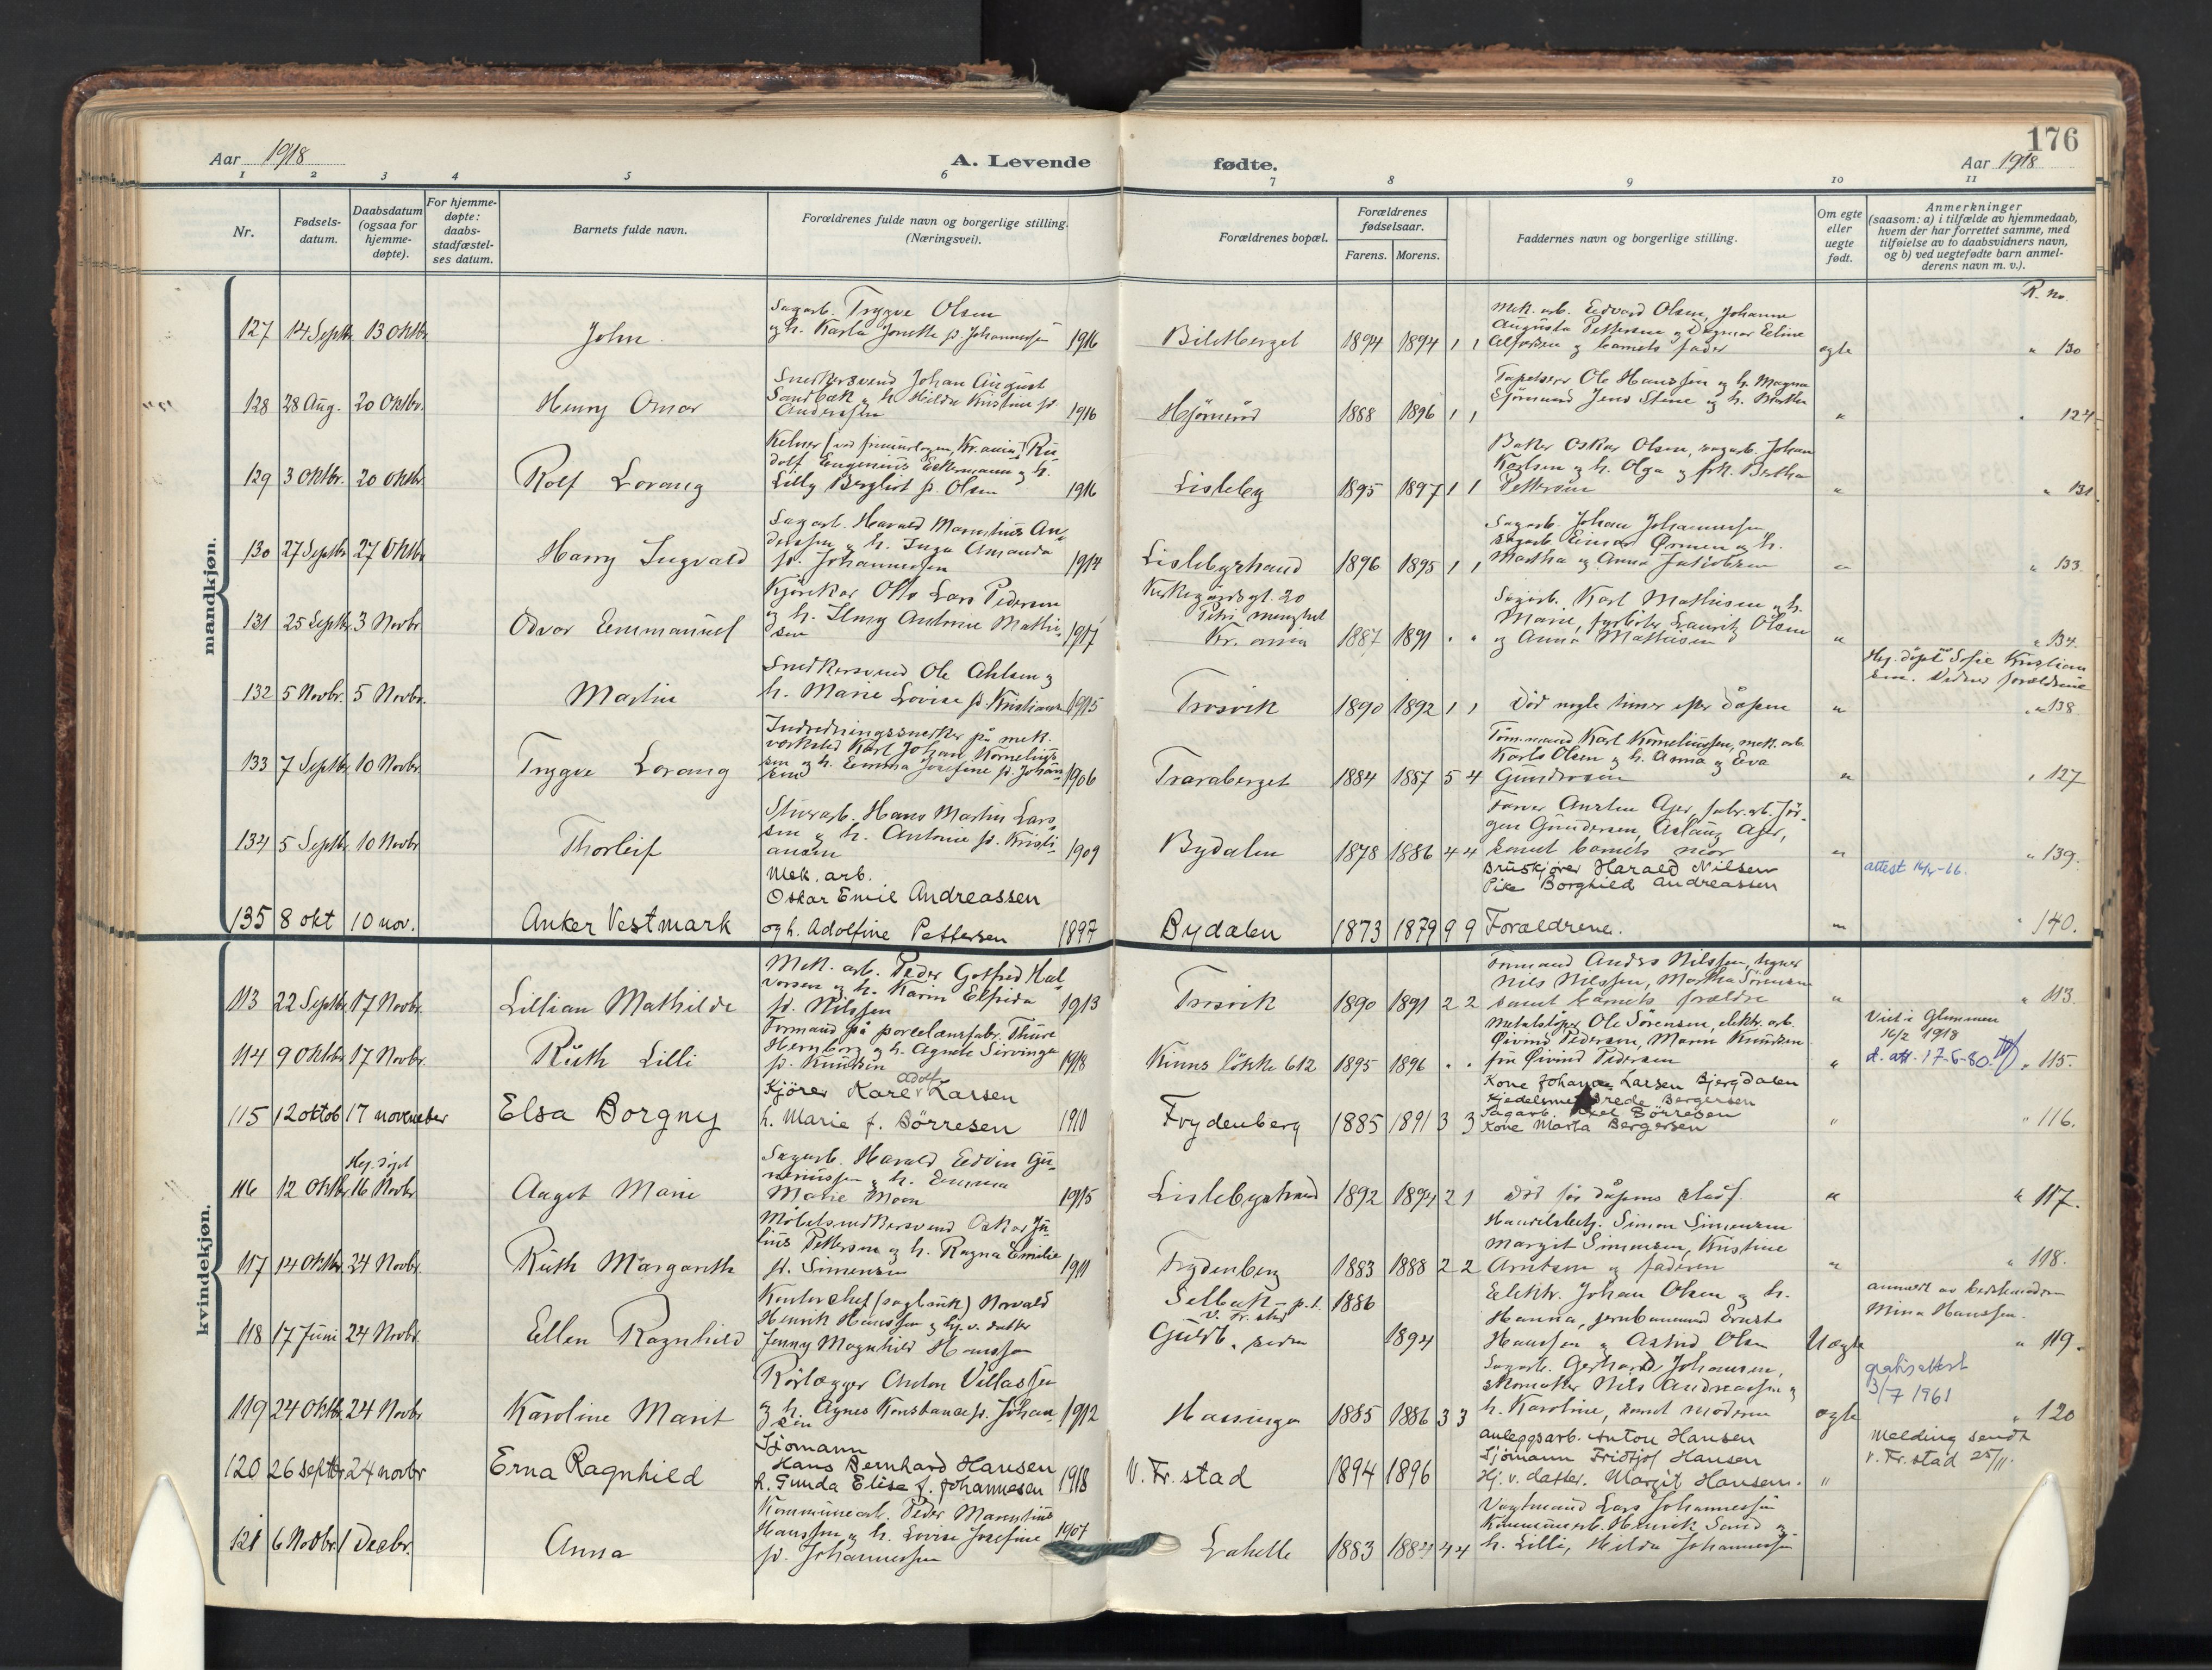 176
Aar 1918
A. Levende
fødte.
Aar 1918
1 2 3 4 5 6 7 8 9 10 11
Nr.
Fødsels-
datum.
Daabsdatum
(ogsaa for
hjemme-
døpte).
For hjemme-
døpte:
daabs-
stadfæstel-
ses datum.
Barnets fulde navn.
Forældrenes fulde navn og borgerlige stilling.
(Næringsvei).
Forældrenes bopæl.
Forældrenes
fødselsaar.
Farens. Morens.
Faddernes navn og borgerlige stilling.
Om egte
eller
uegte
født.
Anmerkninger
(saasom: a) i tilfælde av hjemmedaab,
hvem der har forrettet samme, med
tilføielse av to daabsvidners navn,
og b) ved uegtefødte barn anmel-
derens navn m. v.).
R. no.
mandkjøn.
127 14 Septbr. 13 Oktbr. John
Sagarb. Trygve Olsen
og h. Karla f. Johannessen 1916
1894 1894 1 1
Mek. arb. Edvard Olsen, Johanne
Augusta Pettersen og Dagmar Eline
Alfredsen og barnets fader
egte " 130
128 28 Aug. 20 Oktbr. Henry Omar
Snedkersvend Johan August
Sandbæk og h. Hilda Kristine f.
Anderssen 1916
1888 1896 1 1
Tapetserer Ole Hanssen og h. Magna
Jens Stene og h. Bertha
" 124
129 3 Oktbr. 20 Oktbr. Rolf Lorang
Kelner Ru-
dolf Eugenius Eckermann og h.
Lilly Bergliot f. Olsen 1916
Lisleby 1895 1897 1 1
Baker Oskar Olsen, sagarb. Johan
Karlsen og h. Olga og frk. Bertha
Pettersen
" 131
130 27 Septbr 27 Oktbr Harry Ingvald
Sagarb. Harald Marentius An-
derssen og h. Inga Amanda
f. Johannessen 1914
Lislebystrand 1896 1895 1 1
Sagarb. Johan Johannessen,
sagarb. Einar Ørmen og h.
Martha og Anna Jakobsen
" 133
131 25 Septbr. 3 Novbr. Odvar Emmanuel
Kjørekar Otto Lars Pedersen
og h. Jenny Antonie Mathi-
sen 1917
Kirkegårdsgt. 20
Petri menighet
Kr.ania 1887 1891
Sagarb. Karl Mathisen og h.
Marie, fyrbøter Lauritz Olsen
og Anna Mathisen
" 134
132 5 Novbr. 5 Novbr. Martin
Snedkersvend Ole Ahlsen og
h. Marie Lovise f. Kristiansen 1915
Trosvik 1890 1892 1 1
Død nogle timer efter dåpen
Hj. døpt Sofie Kristian
sen. Vidner forældrene
" 138
133 7 Septbr 10 Novbr. Trygve Lorang
Indredningssnedker på mek.
verksted Karl Johan Kornelius-
sen og h. Emma Josefine f. Johan-
sen 1906
Traraberget 1884 1887 5 4
Tøm.mand Karl Korneliussen, mek. arb.
Karl Olsen og h. Anna og Eva
Gundersen
" 127
134 5 Septbr 10 Novbr Thorleif
Stuerarb. Hans Martin Lars-
sen og h. Antonie f. Kristi-
ansen 1909
Bydalen 1878 1886 4 4
Farver Ajer, fabr.arb. Jør-
gen Gundersen, Aslaug Ajer,
samt barnets mor
" attest 16/4-66 " 139.
135 8 okt 10 nov. Anker Vestmark
Mek. arb.
Oskar Emil Andreassen
og h. Adolfine Pettersen 1897
Bydalen 1873 1879 9 9
Bruskjører Harald Nilsen
Pike Borghild Andreassen
Forældrene.
" 140.
kvindekjøn.
113 22 Septbr 17 Novbr. Lillian Mathilde
Mek. arb. Peder Gotfred Hal-
vorsen og h. Karin Elfrida
f. Nilssen 1913
Trosvik 1890 1891 2 2
Formand Anders Nilssen,
Nils Nilssen, Martha Sørensen
samt barnets forældre
" 113.
114 9 Oktbr. 17 Novbr. Ruth Lilli
Formand på porcelænsfabr. Thure
Hernborg og h. Agnete
f. Knudsen 1918
Kinns løkke 612 1895 1896
Metalstøper Ole Sørensen, elektr. arb.
Øivind Pedersen, Marn Knudsen
fru Øivind Pedersen
Viet i Glemmen
16/2 1918
d. att. 17-6-80. " 115.
115 12 oktob 17 november Elsa Borgny
Kjører Karl Adolf Larsen
h. Marie f. Børresen 1910
Frydenberg 1885 1891 3 3
Kone Johanne Larsen Bjergdalen
Bergersen
Sagarb. Axel Børresen
Kone Marta Bergersen
" 116.
116 12 Oktbr Hj. døpt 16 Novbr Aagot Marie
Sagarb. Harald Edvin Gu-
neriussen og h. Emma
Marie Moen 1915
Lislebystrand 1892 1894 2 1
Død før dåpens stadf.
" 117.
117 14 Oktbr. 24 Novbr. Ruth Margareth
Møbelsnedkersvend Oskar Ju-
lius Pettersen og h. Ragna Emilie
f. Simensen 1911
Frydenberg 1883 1888 2 2
Handelsbetj. Simon Simensen
Margit Simensen, Kristine
Arntsen og faderen
" 118.
118 17 Juni 24 Novbr Ellen Ragnhild
Kontorchef (sagbruk) Norvald
Henrik Hanssen og hj.v. datter
Jenny Magnhild Hanssen
Selbak - p.t. 1886
v. Fr.stad
1894
Elektr. Johan Olsen og h.
Hanna, jernbanemand Ernst
Hanssen og Astrid Olsen
Uegte
anmeldt av bestemoderen
Mina Hanssen.
" 119.
119 24 Oktbr. 24 Novbr Karoline Marit
Rørlægger Anton Villassen
og h. Agnes Konstanse f. Johan
sen 1912
Hassingen 1885 1886 3 3
Sagarb. Gerhard Johansen,
skomaker Nils Andreassen og
h. Karoline, samt moderen
egte
gratis attest
3/7 1961
" 120
120 26 septbr 24 novbr Erna Ragnhild
Sjømann
Hans Bernhard Hansen
h. Gunda Elise f. Johannesen 1918
V. Fr.stad 1894 1896
anleggsarb. Anton Hansen
Sjømann Fridtjof Hansen
Hj. v. datter. Margit Hansen.
"
Melding sendt
v. Fr.stad 25/11.
121 6 Novbr. 1 Decbr. Anna
Kommunearb. Peder Marentius
Hanssen og h. Lovise Josefine 1907
f. Johannessen
Lahelle 1883 1884 4 4
Vagtmand Lars Johannessen
Kommunearb. Henrik Sand og
h. Lilli, Hilda Johannessen